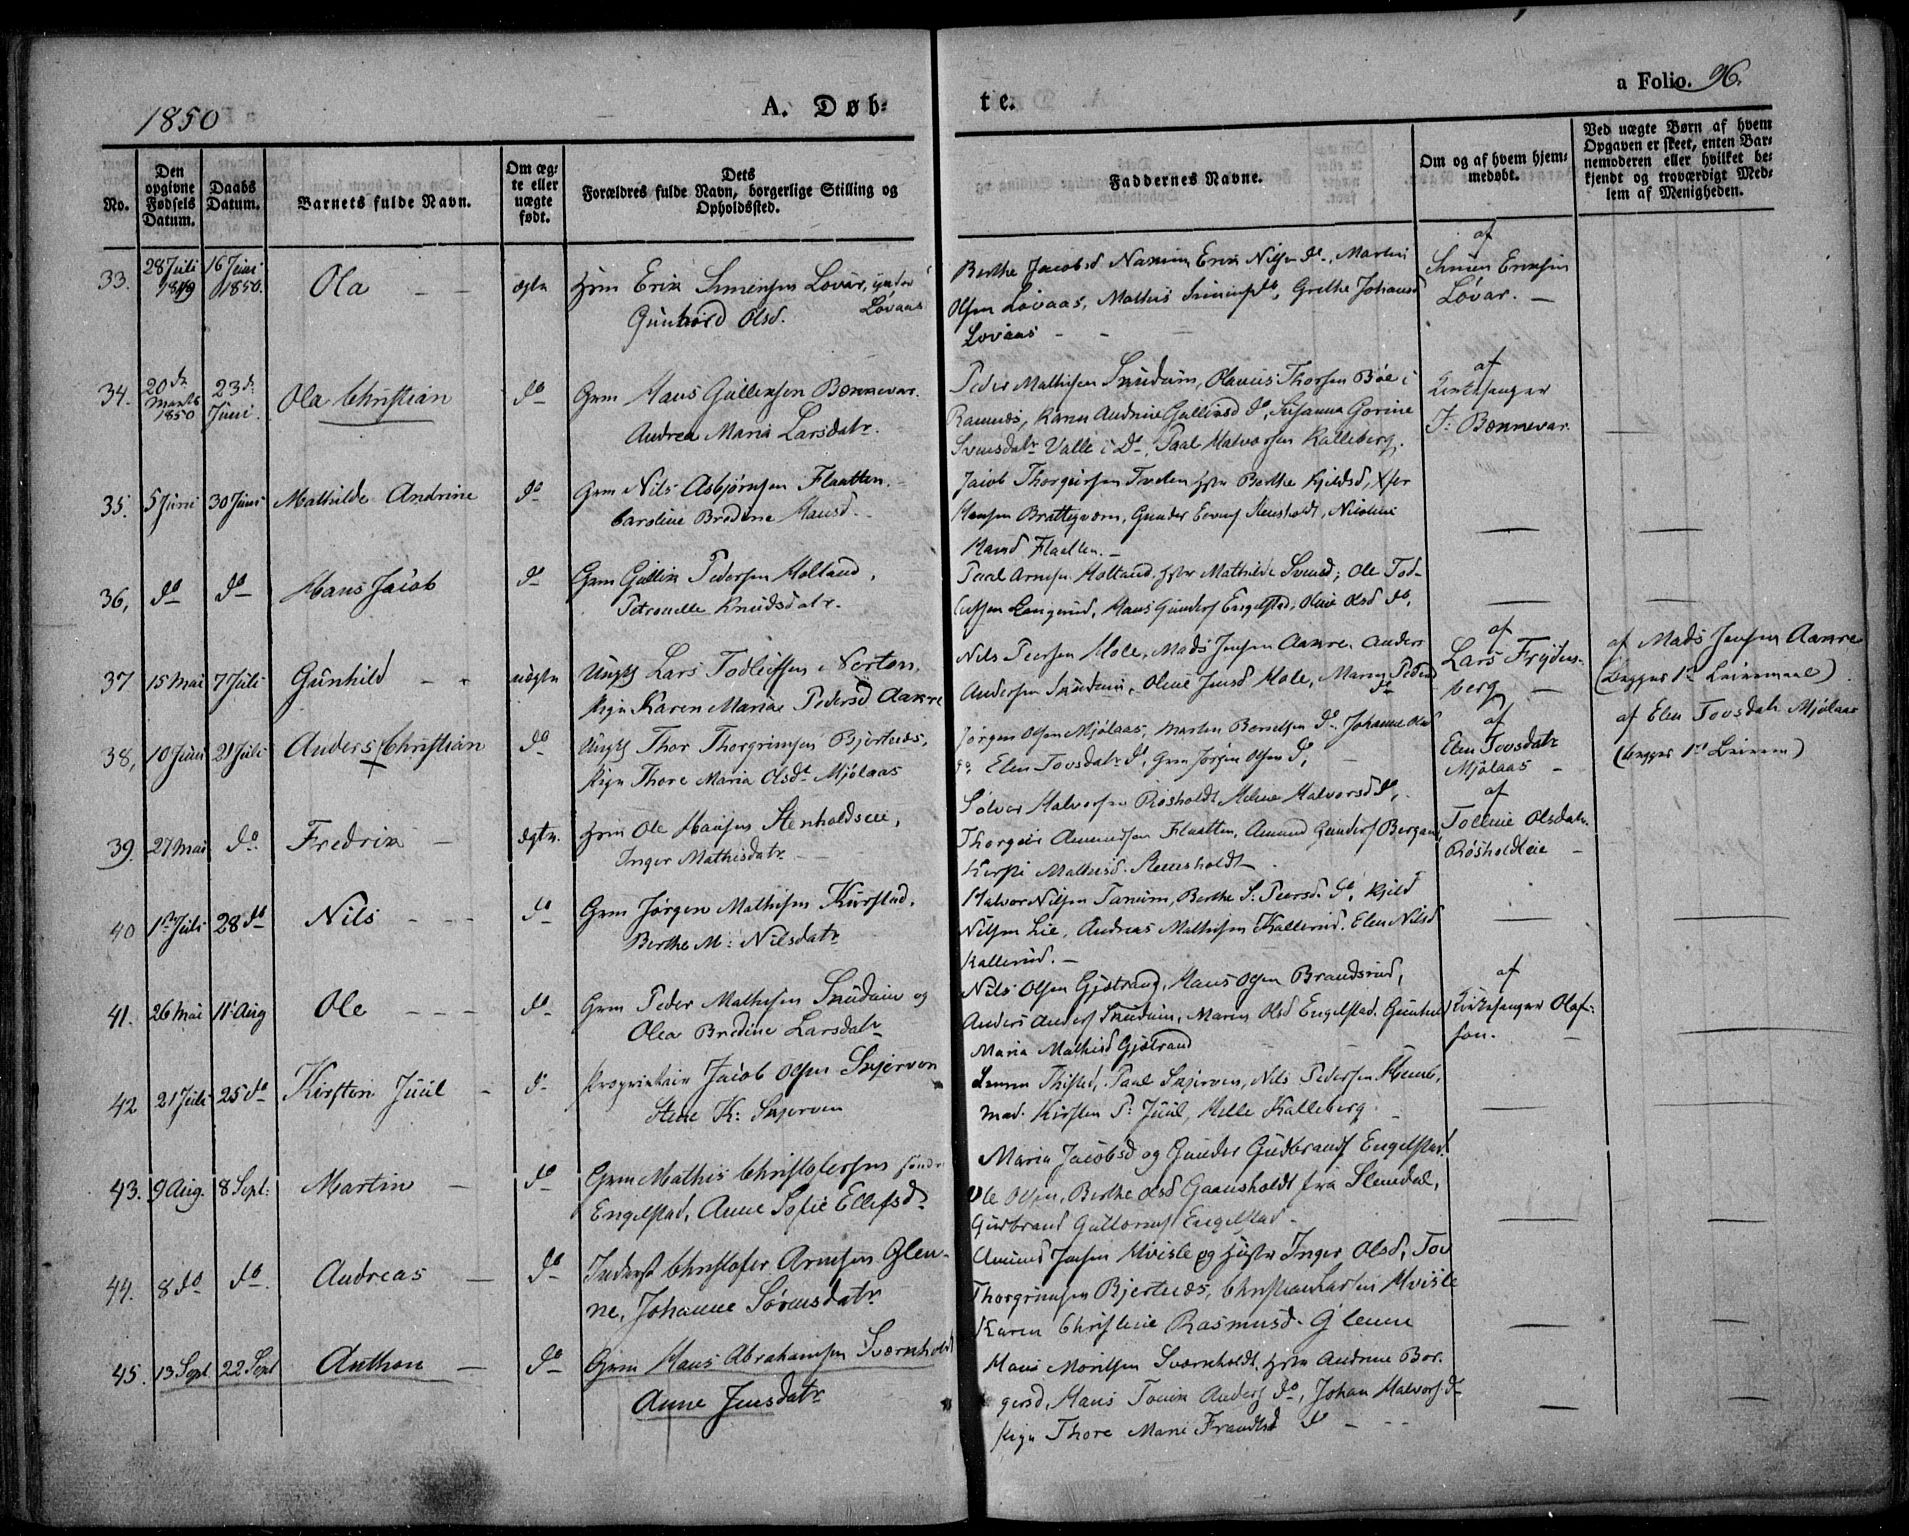 1850
A. Døb=
te.
a Folio. 96.
No.
Den opgivne Fødsels Datum.
Daabs Datum.
Barnets fulde Navn.
Om ægte eller uægte født.
Dets Forældres fulde Navn, borgerlige Stilling og Opholdssted.
Faddernes Navne.
Om og af hvem hjemmedøbt.
Ved uægte Børn af hvem Opgaven er skeet, enten Barnemoderen eller hvilket bekjendt og troværdigt Medlem af Menigheden.
33. 28 Juli 1849 16 Juni 1850. Ola ægte Erik Simensen Løvar,
Gunhild Olsd. Løvaas
Berthe Jacobsd Erik Nilsen do, Martin
Olsen Løvaas, Mathis Grethe Johansd
Løvaas
af
Simen Eriksen
Løvar.
34. 20de Marts 1850 23d. Juni. Ola Christian do Grm Hans Gulliksen Bonnevar.
Andrea Maria Larsdatr.
Peder Mathisen Snudum, Olaus Thorsen Bøe i
Ramnæs, Karen Andrine Gulliksd do, Susanna Gorine
Svensdatr Valle i do, Paal Halvorsen Kalleberg.
af
Kirkesanger
J: Bonnevar
35. 5 Juni 30 Juni Mathilde Andrine do Grm Nils Asbjørnsen Flaatten.
Caroline Bredine Hansd.
Jacob Thorgiersen Foden Hstr Berthe Kjeldsd,
Hansen Brattegværn, Gunder Stensholdt, Nicoline
Hansd Flaatten.
36, do do Hans Jacob do Grm Gullik Pedersen Holland,
Petronelle Knudsdatr.
Paal Arnesen Holland, Hstr Mathilde Svensd; Ole Tod-
Hans Gunders Engelstad, Oline Olsd do.
37 15 Mai 7 Juli Gunhild uægte Ungk Lars Todleifsen Nerton,
Pige Karen Maria Pedersd Aakre
Nils Peersen Hole, Mads Jensen Aakre Anders
Andersen Snudum, Oline Jensd Hole, Maren Pedersd
do
af
Lars Frydens-
berg
af Mads Jensen Aakre
(begges 1ste Leiermaal)
38, 10 Juni 21 Juli Anders Christian do Ungk Thor Thorgrimsen Bjertnæs,
Pige Thore Maria Olsdt Mjølaas
Jørgen Olsen Mjølaas, Morten Berntsen do. Johanne Olsd
do, Elen Tovsdatr do, Grm Jørgen Olsen do,
af
Elen Tovsdatr
Mjølaas
af Elen Tovsdatr Mjølaas
(begges 1ste Leierm)
39. 27 Mai do. Fredrik ægte. Ole Hansen Stenholdteie,
Inger Mathisdatr
Sølver Halvorsen Røsholdt Helene Halvorsd do,
Thorgeir Amundsen Flaatten, Amund Gunders Bergan
Mathisd. Stensholdt
af
Tolline Olsdatr.
Røsholdteie
40 1ste Juli 28 do Nils do Grm Jørgen Mathisen Kirstad.
Berthe M: Nilsdatr
Halvor Nilsen Tanum, Berthe S: Peersd. do, Kjeld
Nilsen Lie, Andreas Mathisen Kallerud. Elen Nilsd
Kallerud.
41. 26 Mai 11 Aug Ole do Grm Peder Mathisen Snudum og
Olea Bredine Larsdatr
Nils Olsen Gjøtrang, Hans Olsen Brandsrud,
Anders Anders Snudum, Maren Olsd Engelstad. Gunhild
Maria Mathisd Gjøtrand
af
Kirkesanger Olaf-
sen.
42 21 Juli 25 do Kirsten Juul do Proprietair Jacob Olsen Skjerven
Stine K: Skjerven
Paal Skjerven, Nils Pedersen
Mad. Kirsten P: Juul, Helle Kalleberg.
43. 9 Aug. 8 Sept: Martin do Grm Mathis Christofersen søndr
Engelstad, Anne Sofie Ellefsd
Maria Jacobsd og Gunder Gudbrands Engelstad
Ole Olsen, Berthe Olsd Gaansholdt fra Slemdal,
Gudbrand Guttorms Engelstad
44. 8 do do. Andreas do Inderst Christofer Arnesen Glen-
ne, Johanne Sørensdatr
Amund Jensen Hvisle og Hustr Inger Olsd, Tov
Thorgrimsen Bjertnæs, Christian Larsen Hvisle
Karen Christine Rasmusd. Glenne
45. 13 Sept. 22 Sept Anthon do Grm Hans Abrahamsen Sværnholdt
Anne Jensdatr
Hans Moritsen Sværnholdt, Hstr Andrine Bor-
gersd, Hans Tovik Anders do, Johan Halvors. do
Pige Thore Marie Frandtsd do